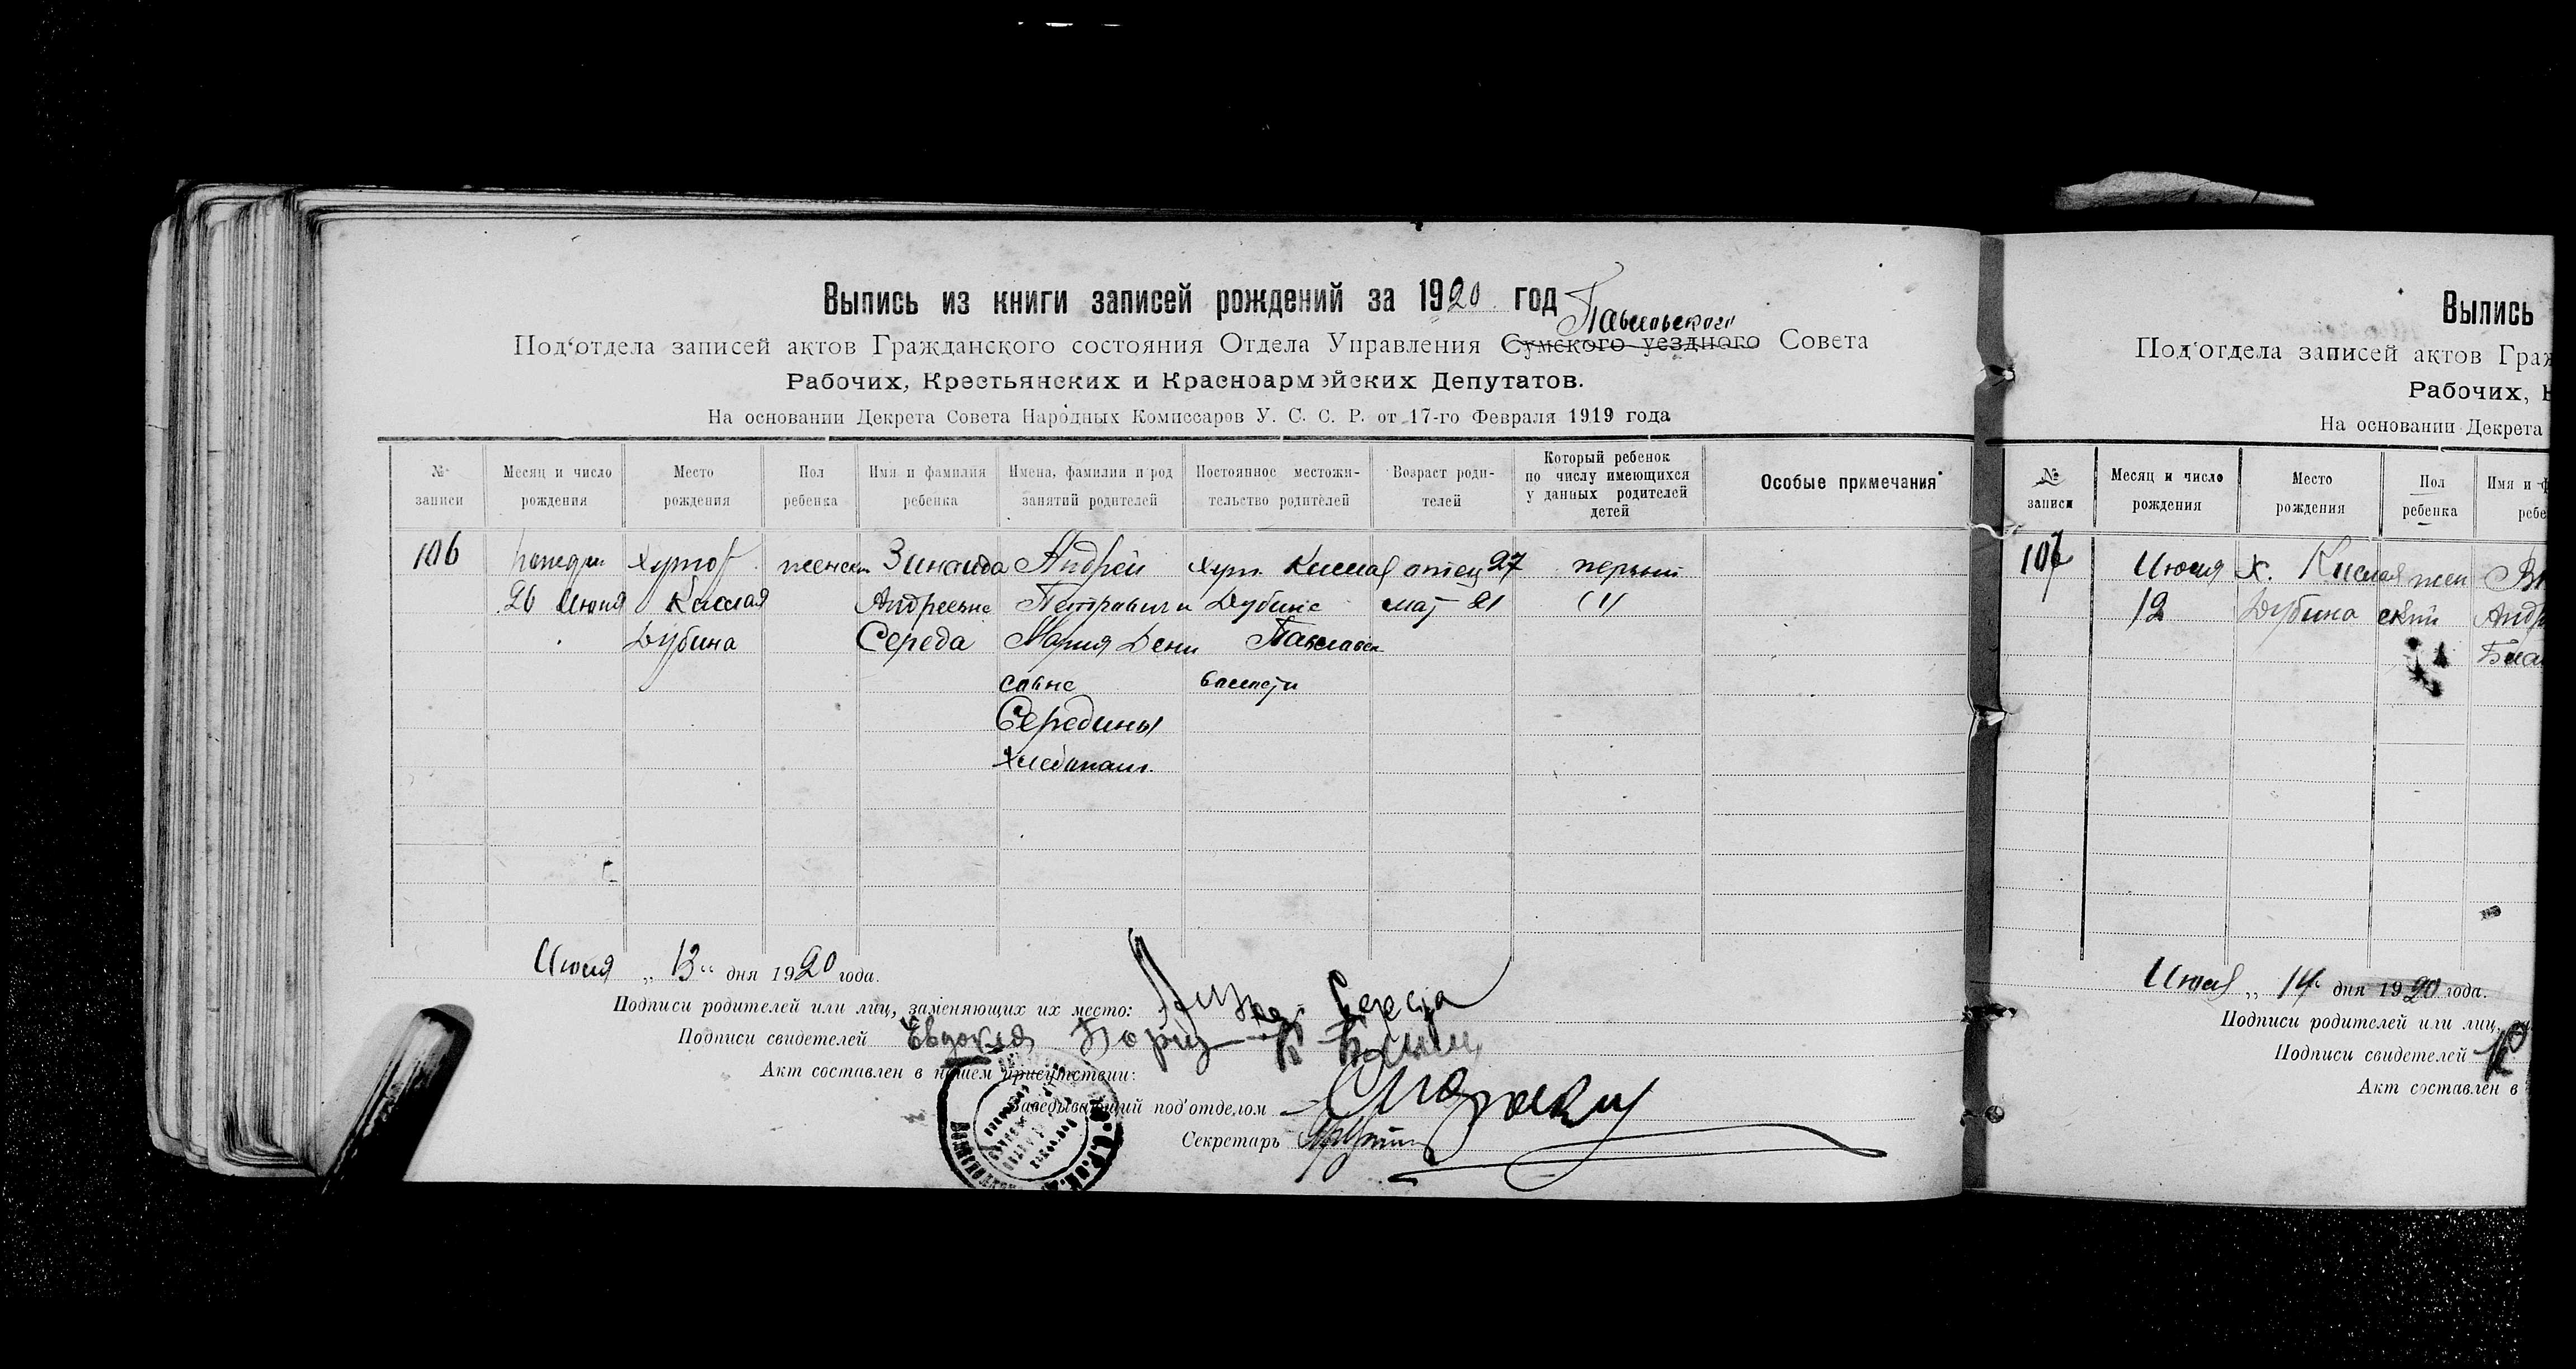 Выпись из книги записей рождений за 1920 год
Павловского
Под'отдела записей актов Гражданского состояния Отдела Управления Сумского уездного Совета
Рабочих, Крестьянских и Красноармейских Депутатов.
На основании Декрета Совета Народных Комиссаров У. С. С. Р. от 17-го Февраля 1919 года
№ записи
Месяц и число рождения
Место рождения
Пол ребенка
Имя и фамилия ребенка
Имена, фамилии и род занятий родителей
Постоянное местожительство родителей
Возраст родителей
Который ребенок по числу имеющихся у данных родителей детей
Особые примечания
106 Хутор женски Зинаида Андрей хут. Кислая отец 27 первый
26 Июня Кислая Андреевна Петрович и Дубина мат 21 (1)
Дубина Середа Мария Дени Павловск
совна волости
Середины
хлебопаш.
Июля „13“ дня 1920 года.
Подписи родителей или лиц, заменяющих их место: Середа
Подписи свидетелей Евдокия
Акт составлен в нашем присутствии:
Заведывающий под'отделом
Секретарь
Выпись
Под'отдела записей актов Граж
Рабочих, К
На основании Декрета
№ записи
Месяц и число рождения
Место рождения
Пол ребенка
Имя и ф
ребе
107 Июля х. Кислая жен
12 Дубина ский Андр
Июля „14“ дня 1920 года.
Подписи родителей или лиц,
Подписи свидетелей
Акт составлен в